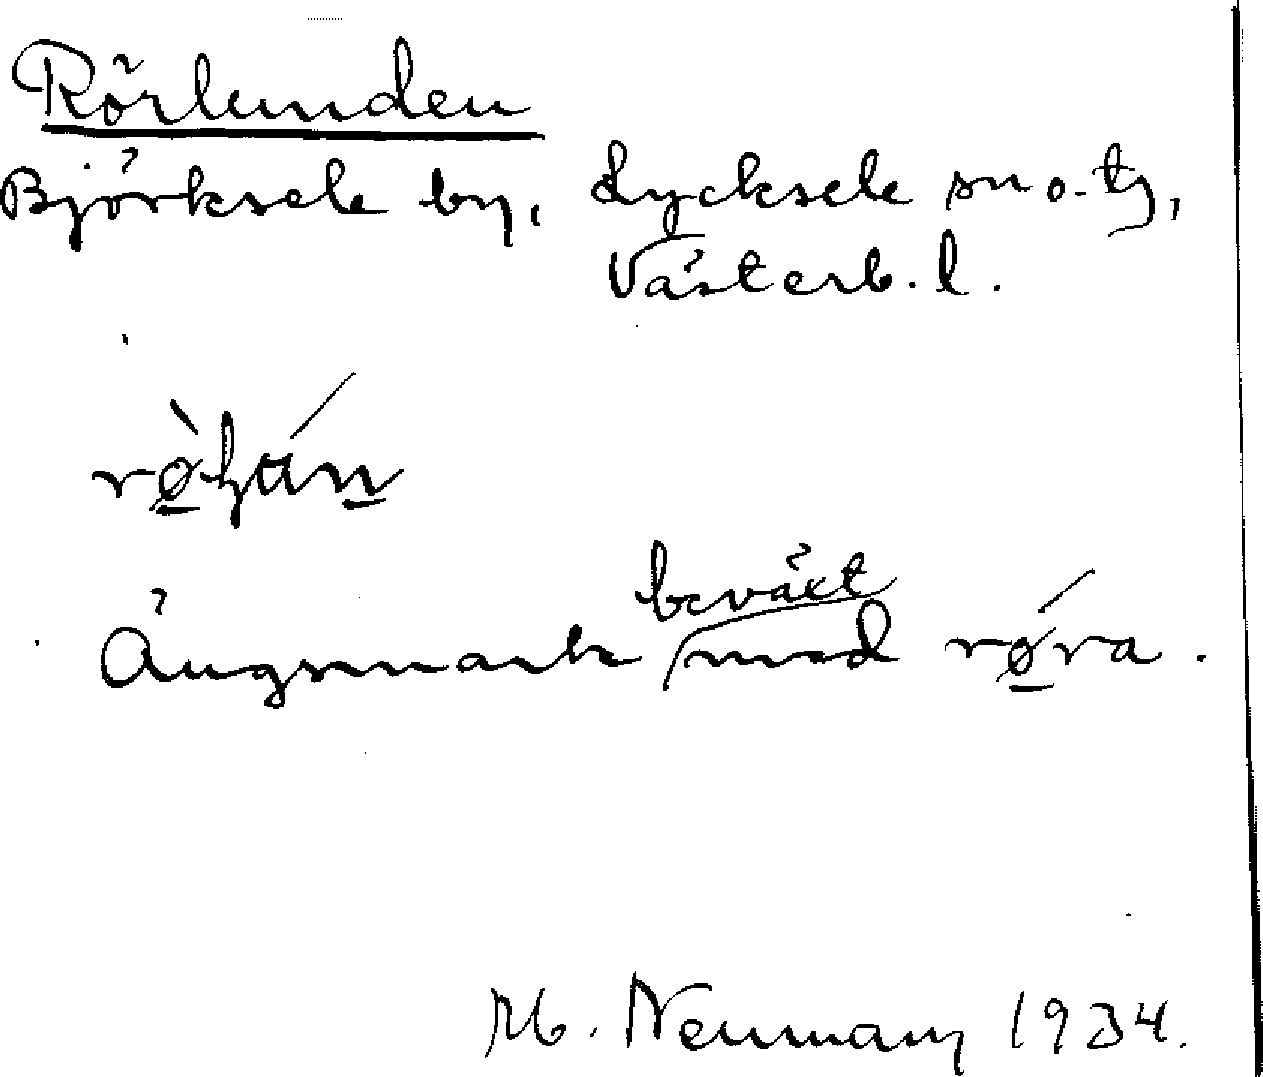 Rörlunden
Björksele by, Lycksele sn o. tg,
Västerb. l.
Ängsmark beväxt med rø̱ra.
M. Neuman 1934.